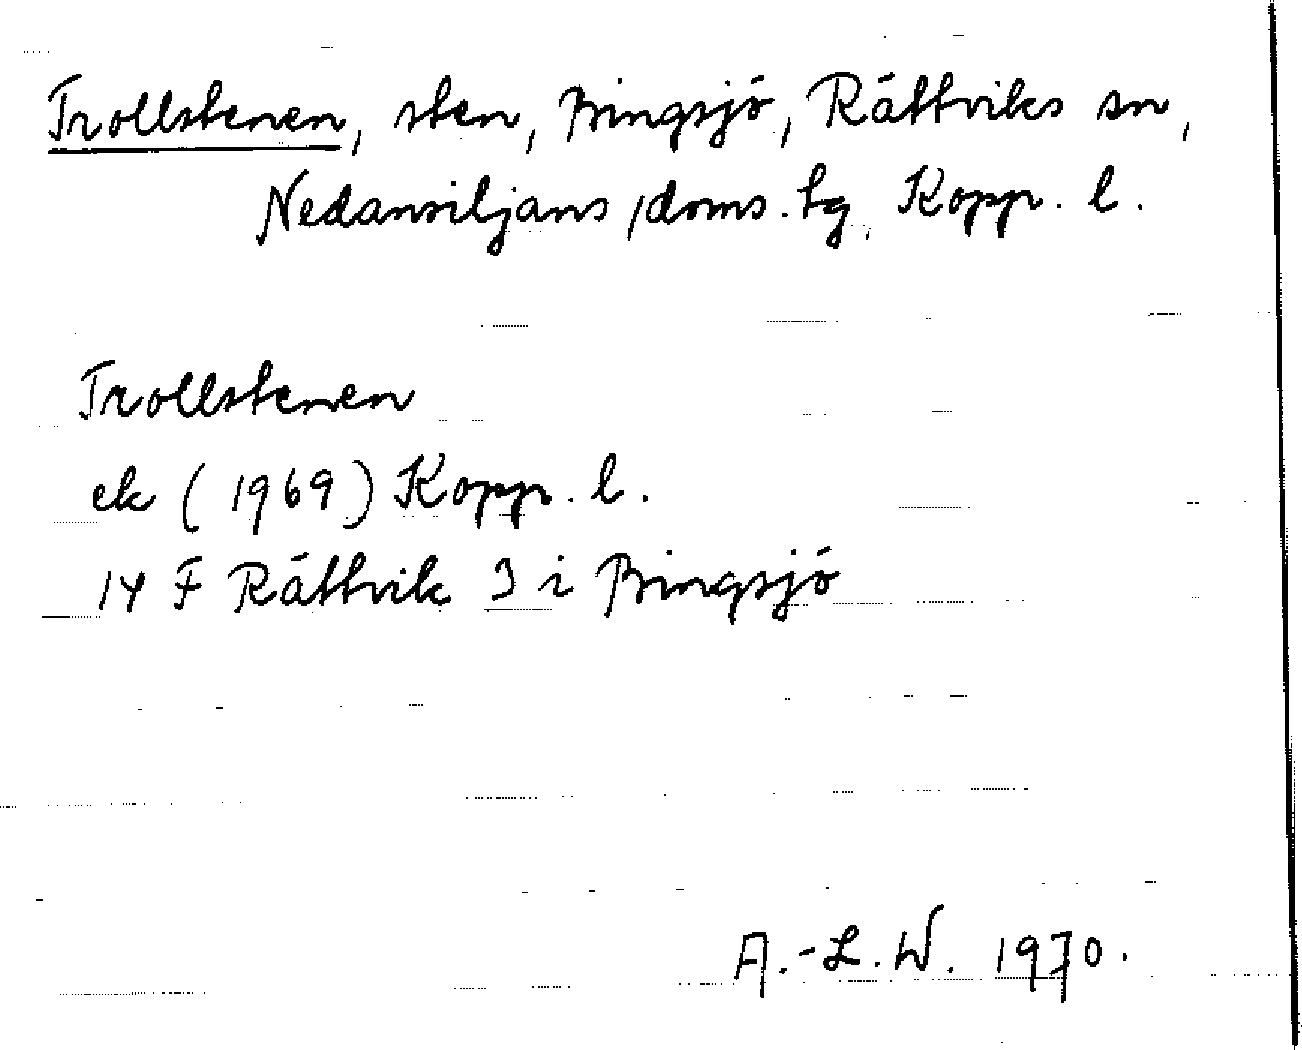 Trollstenen, sten, Bingsjö, Rättviks sn,
Nedansiljans, doms. tg, Kopp. l.
Trollstenen
ek (1969) Kopp. l.
14 F Rättvik J i Bingsjö
A.-L.W. 1970.